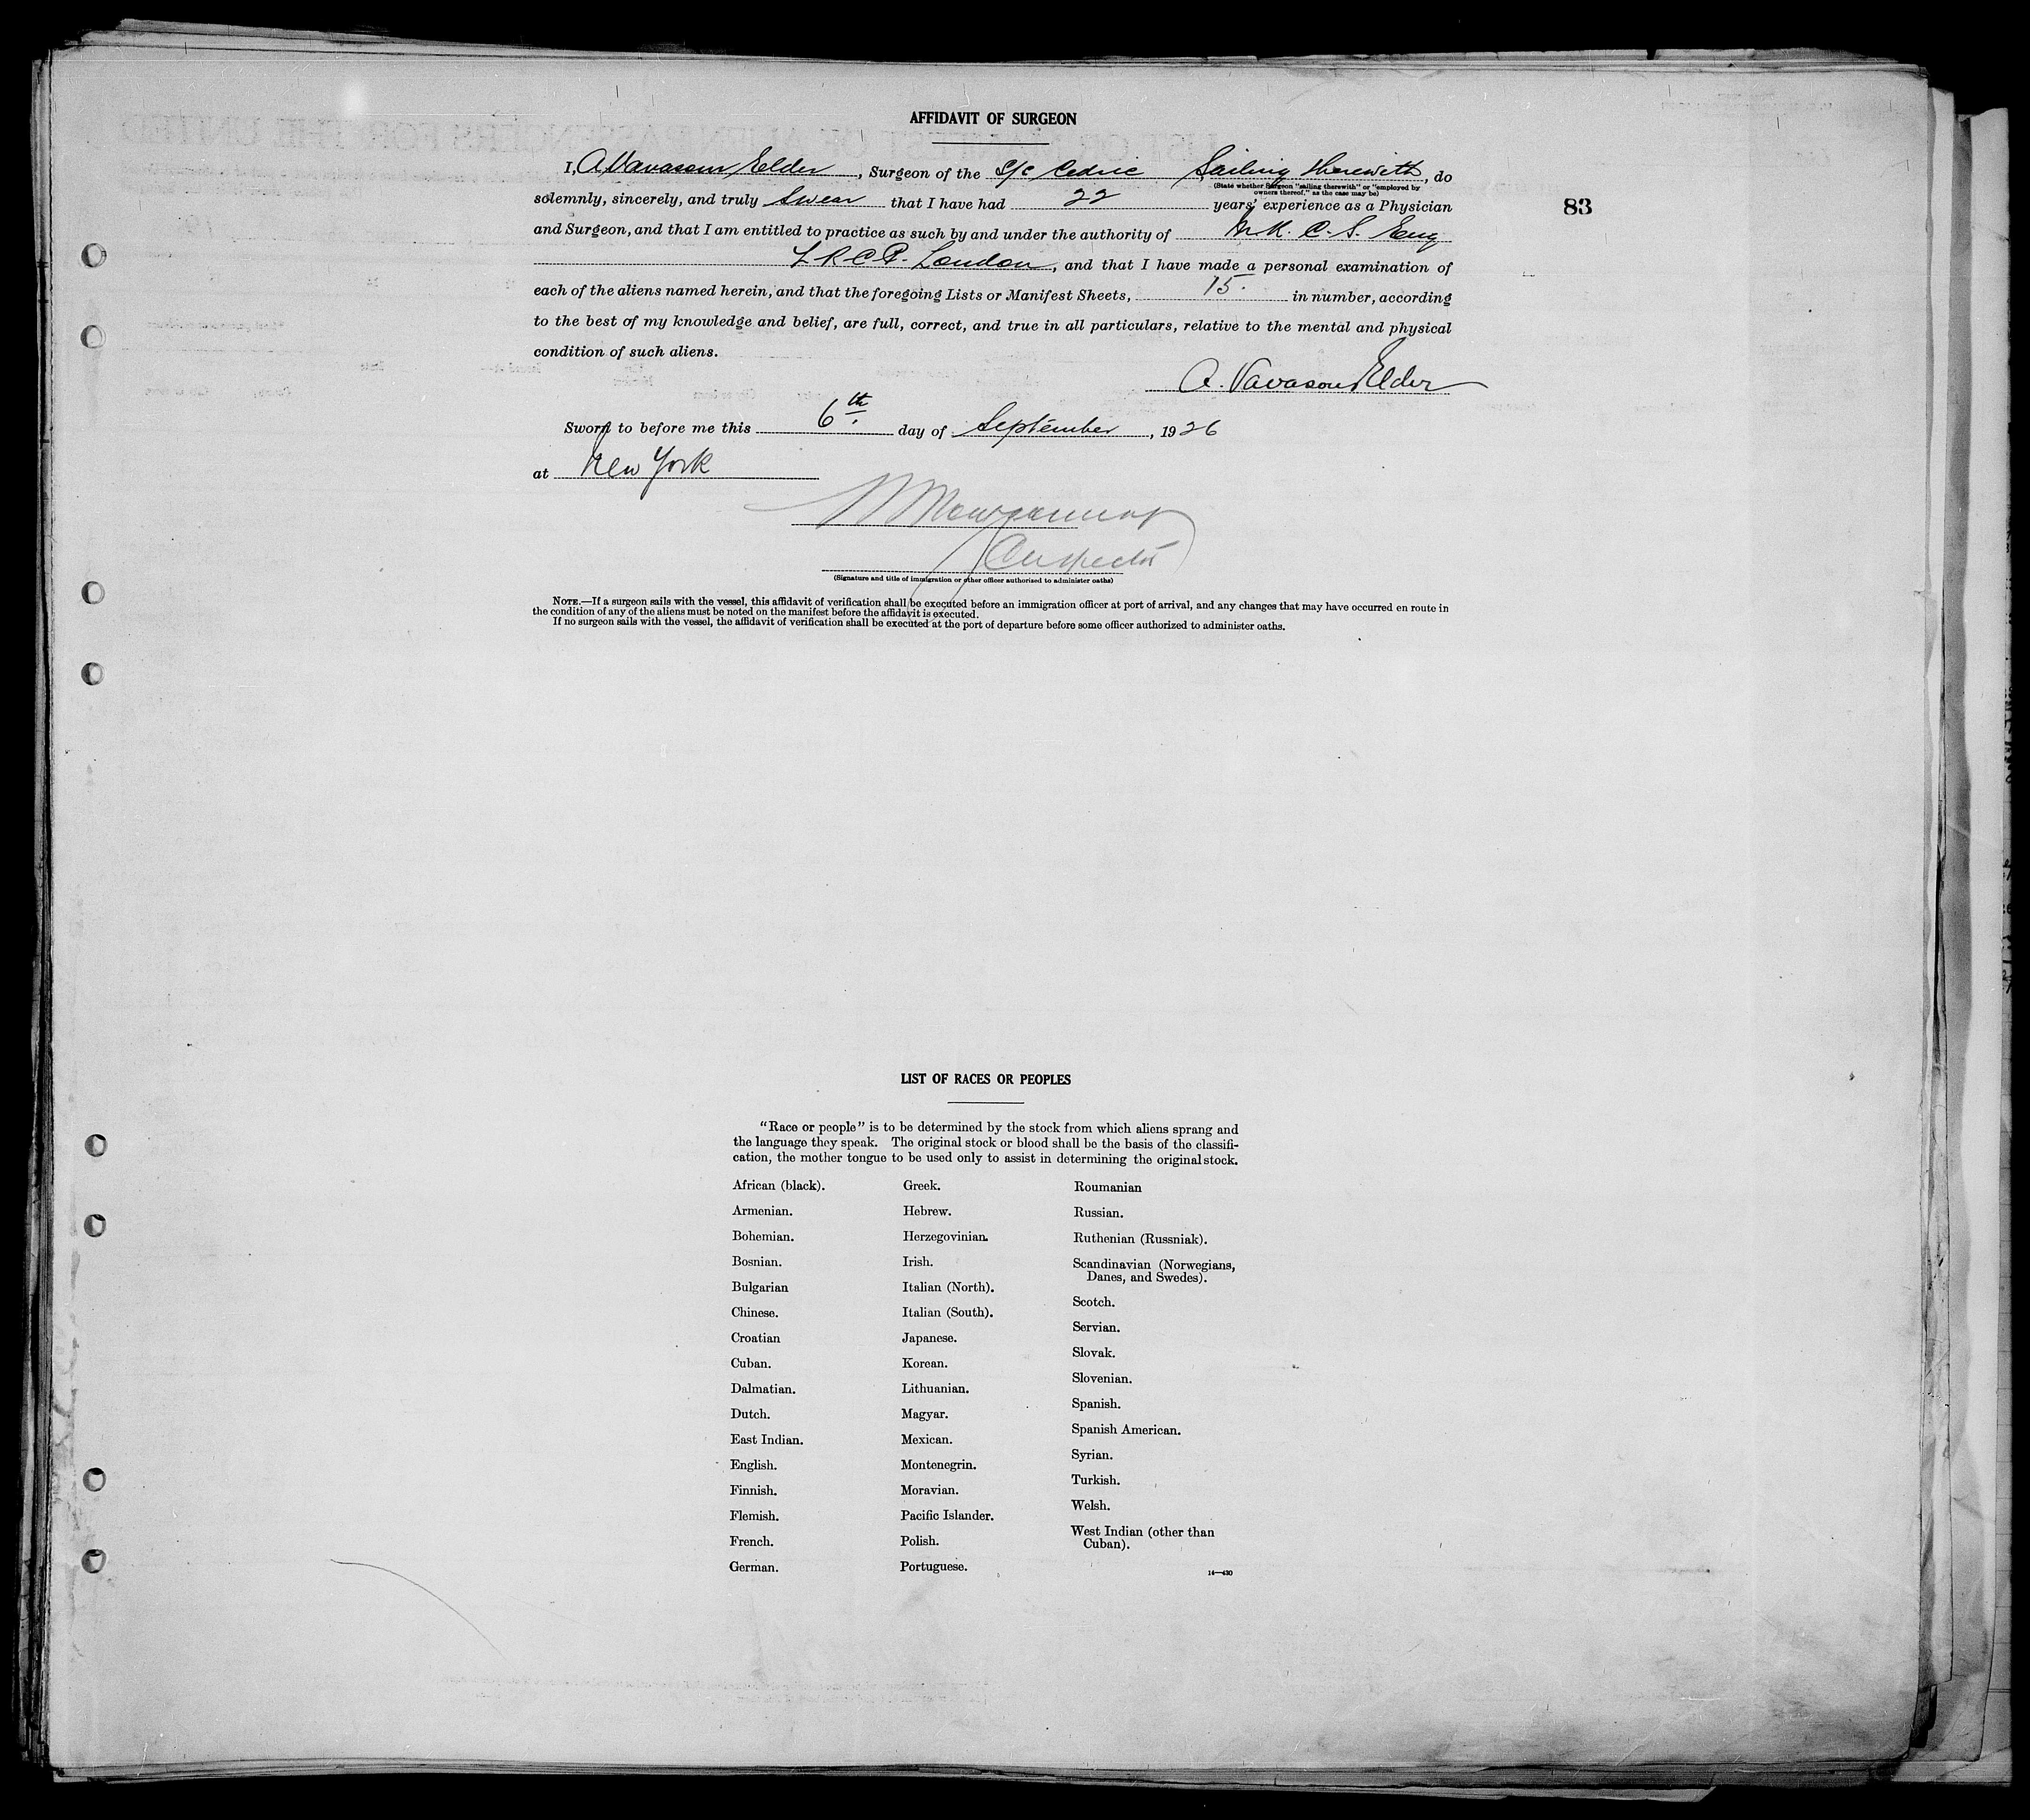 AFFIDAVIT OF SURGEON
I, A Vavasour Elder, Surgeon of the S/S Cedric Sailing Therewith, do
(State whether Surgeon "sailing therewith" or "employed by
owners thereof," as the case may be)
solemnly, sincerely, and truly Swear that I have had 22 years' experience as a Physician
83
and Surgeon, and that I am entitled to practice as such by and under the authority of M.R.C.S. Eng
L.R.C.P. London, and that I have made a personal examination of
each of the aliens named herein, and that the foregoing Lists or Manifest Sheets, 15. in number, according
to the best of my knowledge and belief, are full, correct, and true in all particulars, relative to the mental and physical
condition of such aliens.
A. Vavasour Elder
Sworn to before me this 6th. day of September, 1926
at New York
Inspector
(Signature and title of immigration or other officer authorized to administer oaths)
NOTE.—If a surgeon sails with the vessel, this affidavit of verification shall be executed before an immigration officer at port of arrival, and any changes that may have occurred en route in
the condition of any of the aliens must be noted on the manifest before the affidavit is executed.
If no surgeon sails with the vessel, the affidavit of verification shall be executed at the port of departure before some officer authorized to administer oaths.
LIST OF RACES OR PEOPLES
"Race or people" is to be determined by the stock from which aliens sprang and
the language they speak. The original stock or blood shall be the basis of the classifi-
cation, the mother tongue to be used only to assist in determining the original stock.
African (black).
Armenian.
Bohemian.
Bosnian.
Bulgarian
Chinese.
Croatian
Cuban.
Dalmatian.
Dutch.
East Indian.
English.
Finnish.
Flemish.
French.
German.
Greek.
Hebrew.
Herzegovinian.
Irish.
Italian (North).
Italian (South).
Japanese.
Korean.
Lithuanian.
Magyar.
Mexican.
Montenegrin.
Moravian.
Pacific Islander.
Polish.
Portuguese.
Roumanian
Russian.
Ruthenian (Russniak).
Scandinavian (Norwegians,
Danes, and Swedes).
Scotch.
Servian.
Slovak.
Slovenian.
Spanish.
Spanish American.
Syrian.
Turkish.
Welsh.
West Indian (other than
Cuban).
14—430